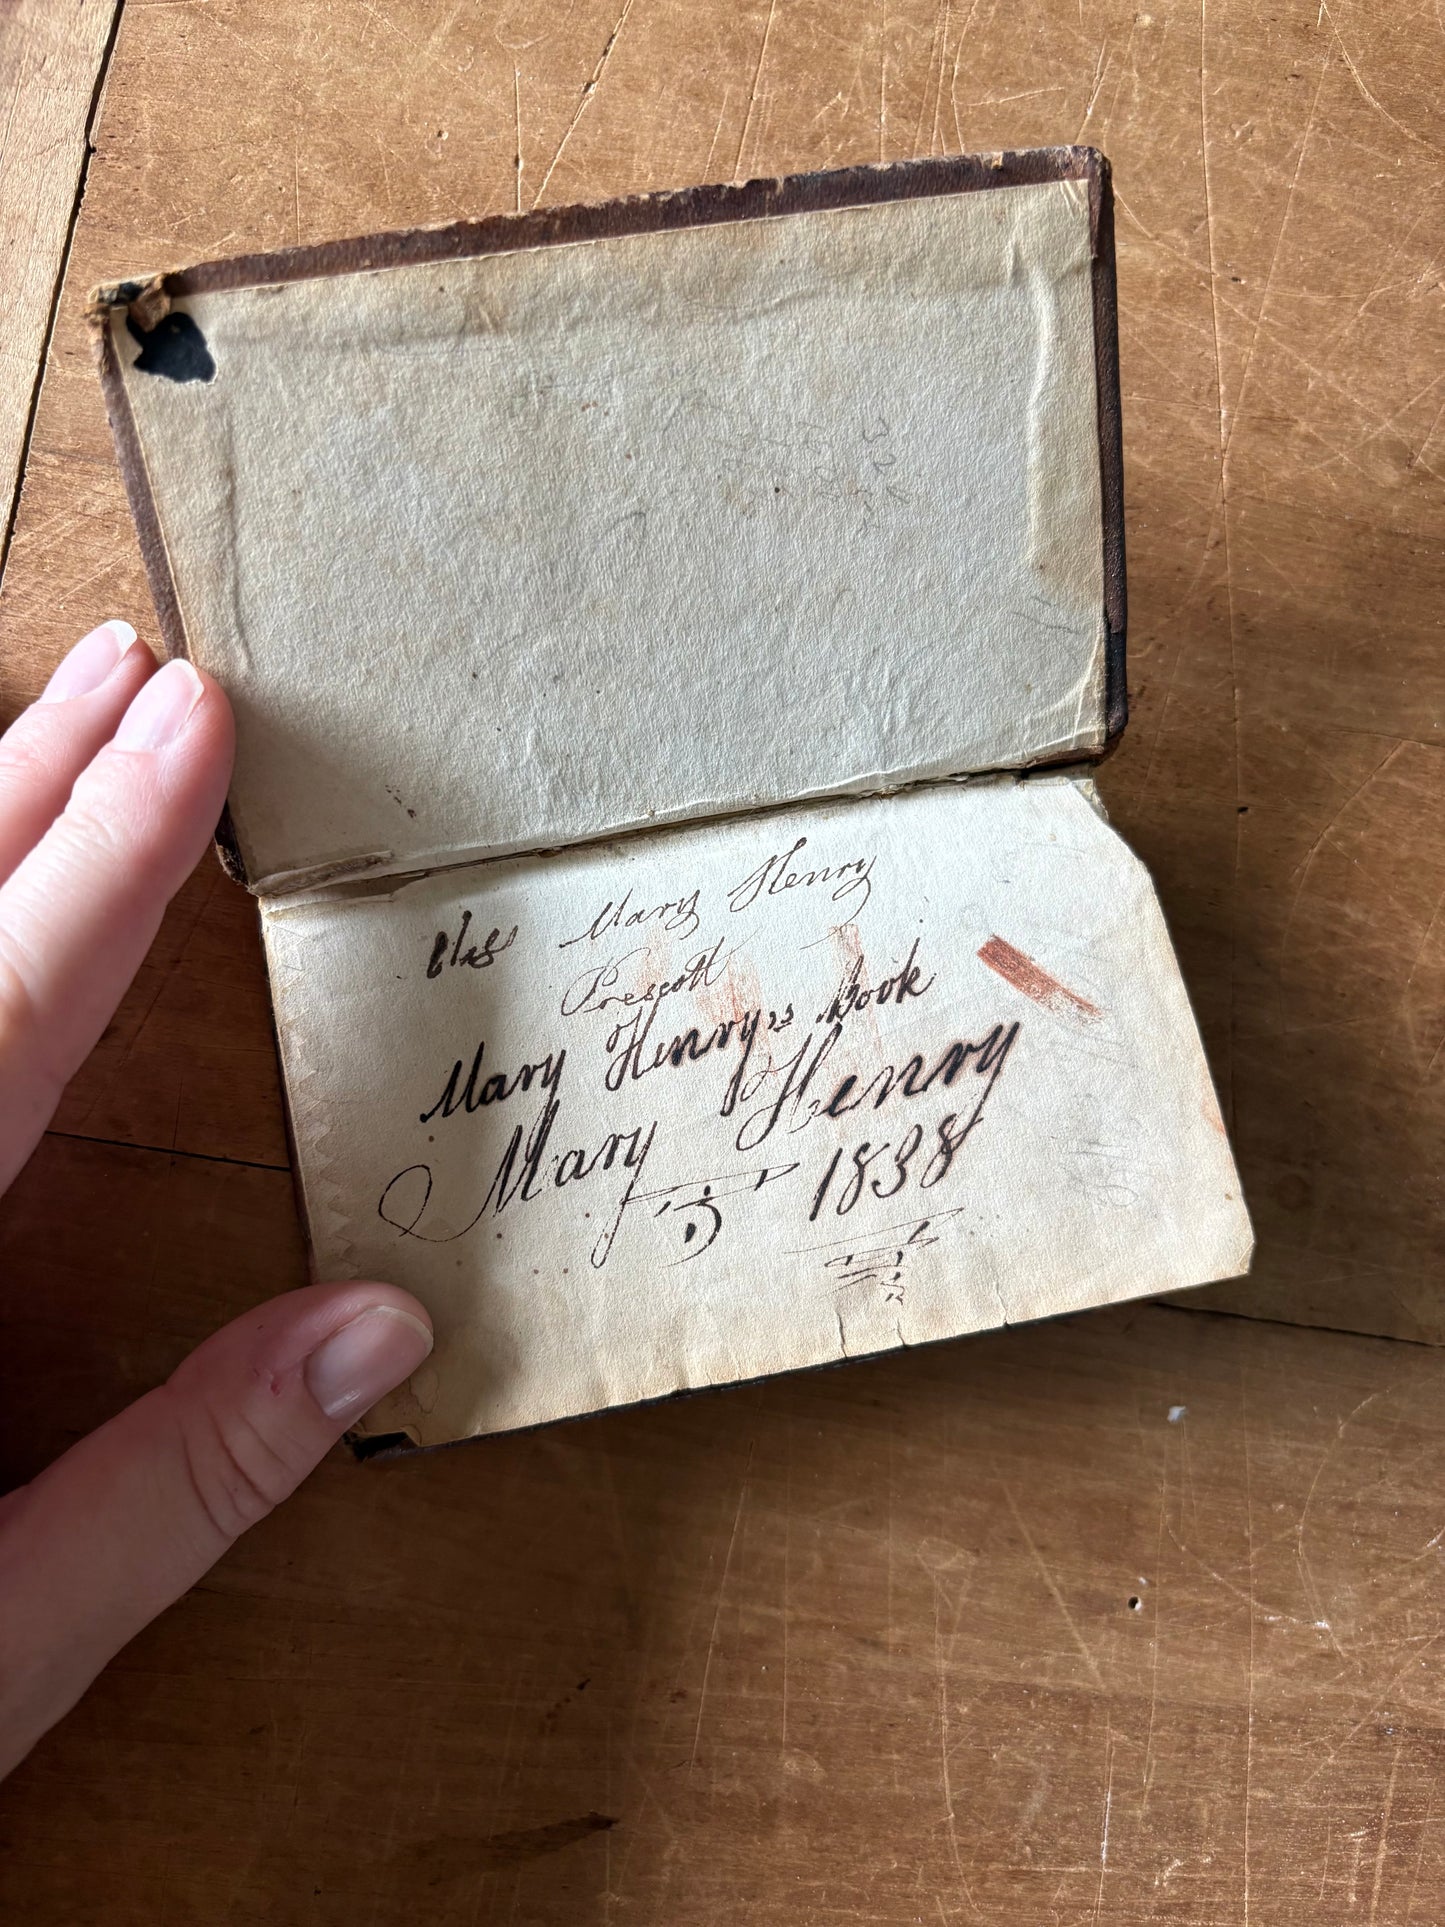 Miss Mary Henry
Prescott
Mary Henry's book
Mary Henry
1838